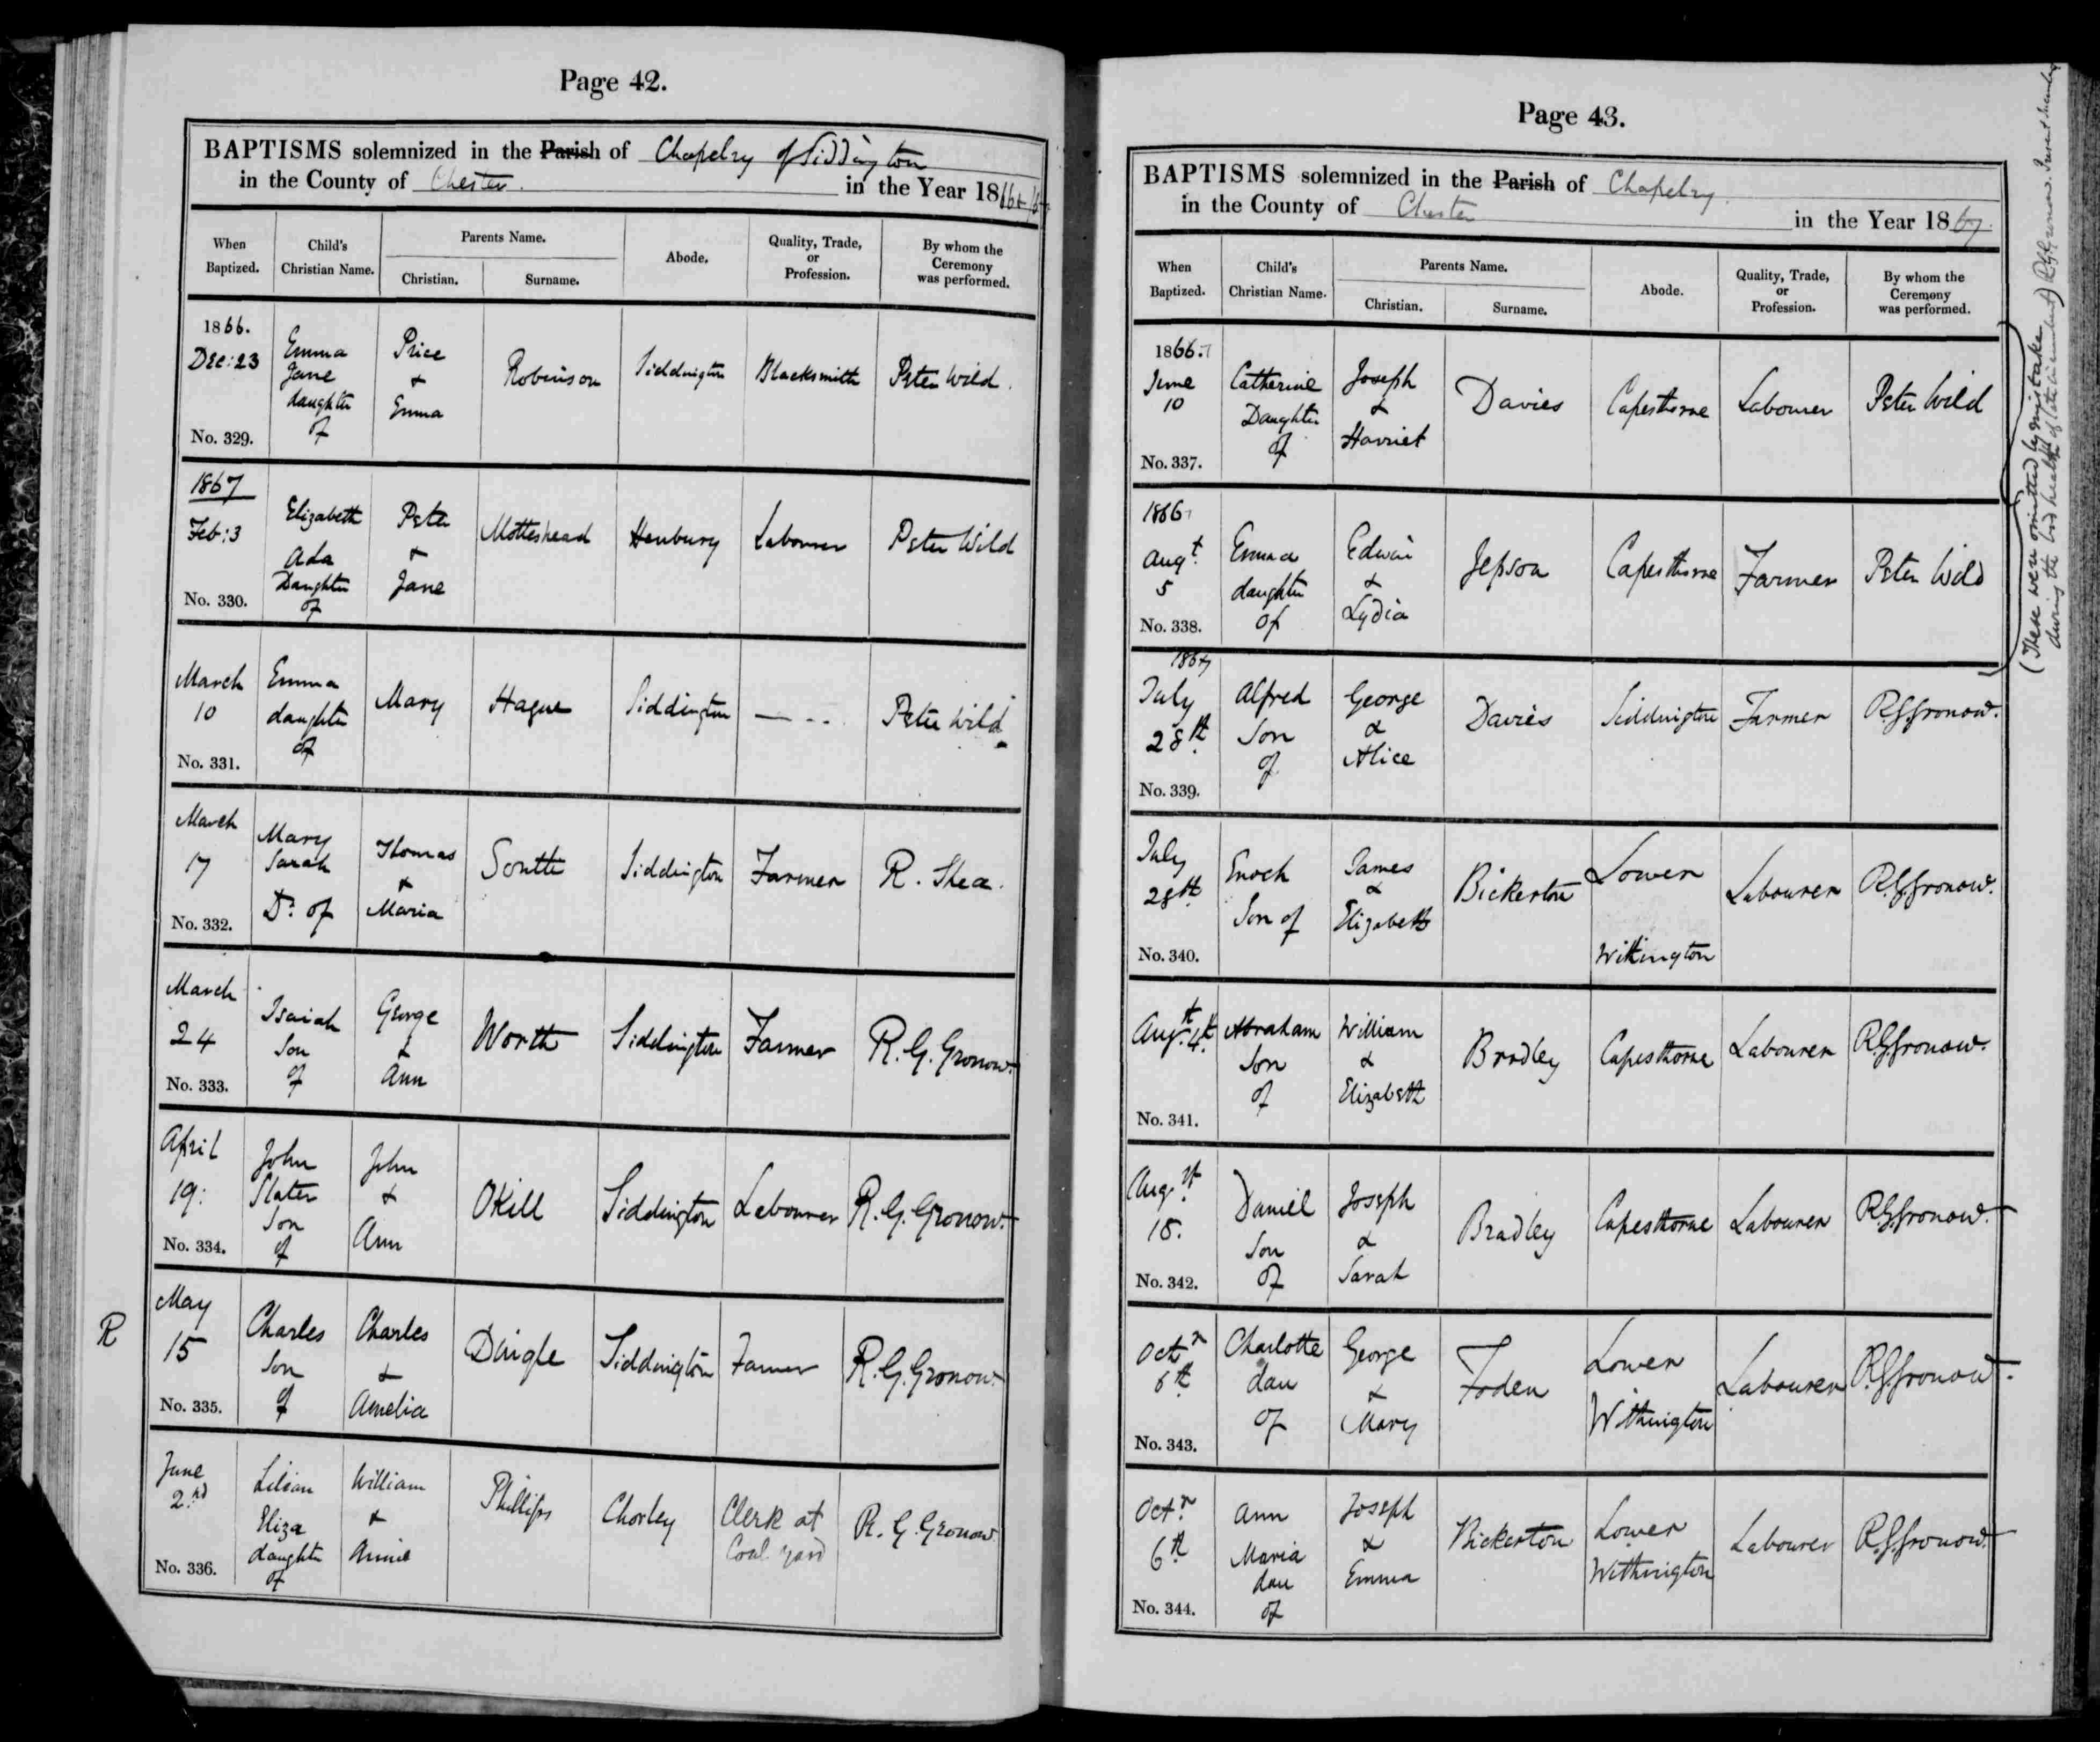 Page 42.
BAPTISMS solemnized in the Parish of Chapelry of Siddington
in the County of Chester. in the Year 18
When Baptized. Child's Christian Name. Parents Name. Abode. Quality, Trade, or Profession. By whom the Ceremony was performed.
Christian. Surname.
1866. Dec: 23 No. 329. Emma Jane daughter of Price & Emma Robinson Siddington Blacksmith Peter Wild.
1867 Feb: 3 No. 330. Elizabeth Ada Daughter of Peter & Jane Motteshead Henbury Labourer Peter Wild
March 10 No. 331. Emma daughter of Mary Hague Siddington — - - Peter Wild
March 17 No. 332. Mary Sarah Dr. of Thomas & Maria Siddington Farmer R. Shea.
March 24 No. 333. Isaiah Son of George & Ann Worth Siddington Farmer R. G. Gronow.
April 19: No. 334. John Slater Son of John & Ann Okill Siddington Labourer R. G. Gronow.
R
May 15 No. 335. Charles Son of Charles & Amelia Siddington Farmer R. G. Gronow.
June 2.nd No. 336. Lilian Eliza daughter of William & Annie Phillips Chorley Clerk at Coal yard R. G. Gronow
Page 43.
BAPTISMS solemnized in the Parish of Chapelry.
in the County of Chester in the Year 1867.
When Baptized. Child's Christian Name. Parents Name. Abode. Quality, Trade, or Profession. By whom the Ceremony was performed.
Christian. Surname.
1866. June 10 No. 337. Catherine Daughter of Joseph & Harriet Davies Capesthorne Labourer Peter Wild
1866 Augt. 5 No. 338. Emma daughter of Edwin & Lydia Jepson Capesthorne Farmer Peter Wild
1867 July 28th. No. 339. Alfred Son of George & Alice Davies Siddington Farmer R.G.Gronow.
July 28th. No. 340. Enoch Son of James & Elizabeth Bickerton Lower Withington Labourer R.G.Gronow.
Augt. 4th. No. 341. Abraham Son of William & Elizabeth Bradley Capesthorne Labourer R.G.Gronow.
Augst. 18. No. 342. Daniel Son of Joseph & Sarah Bradley Capesthorne Labourer R.G.Gronow.
Octr 6th. No. 343. Charlotte dau of George & Mary Foden Lower Withington Labourer R.G.Gronow.
Octr. 6th No. 344. Ann Maria dau of Joseph & Emma Bickerton Lower Withington Labourer R.G.Gronow.
(These were omitted by mistake
during the bad health of late incumbent) R.G.Gronow. Present Incumbent